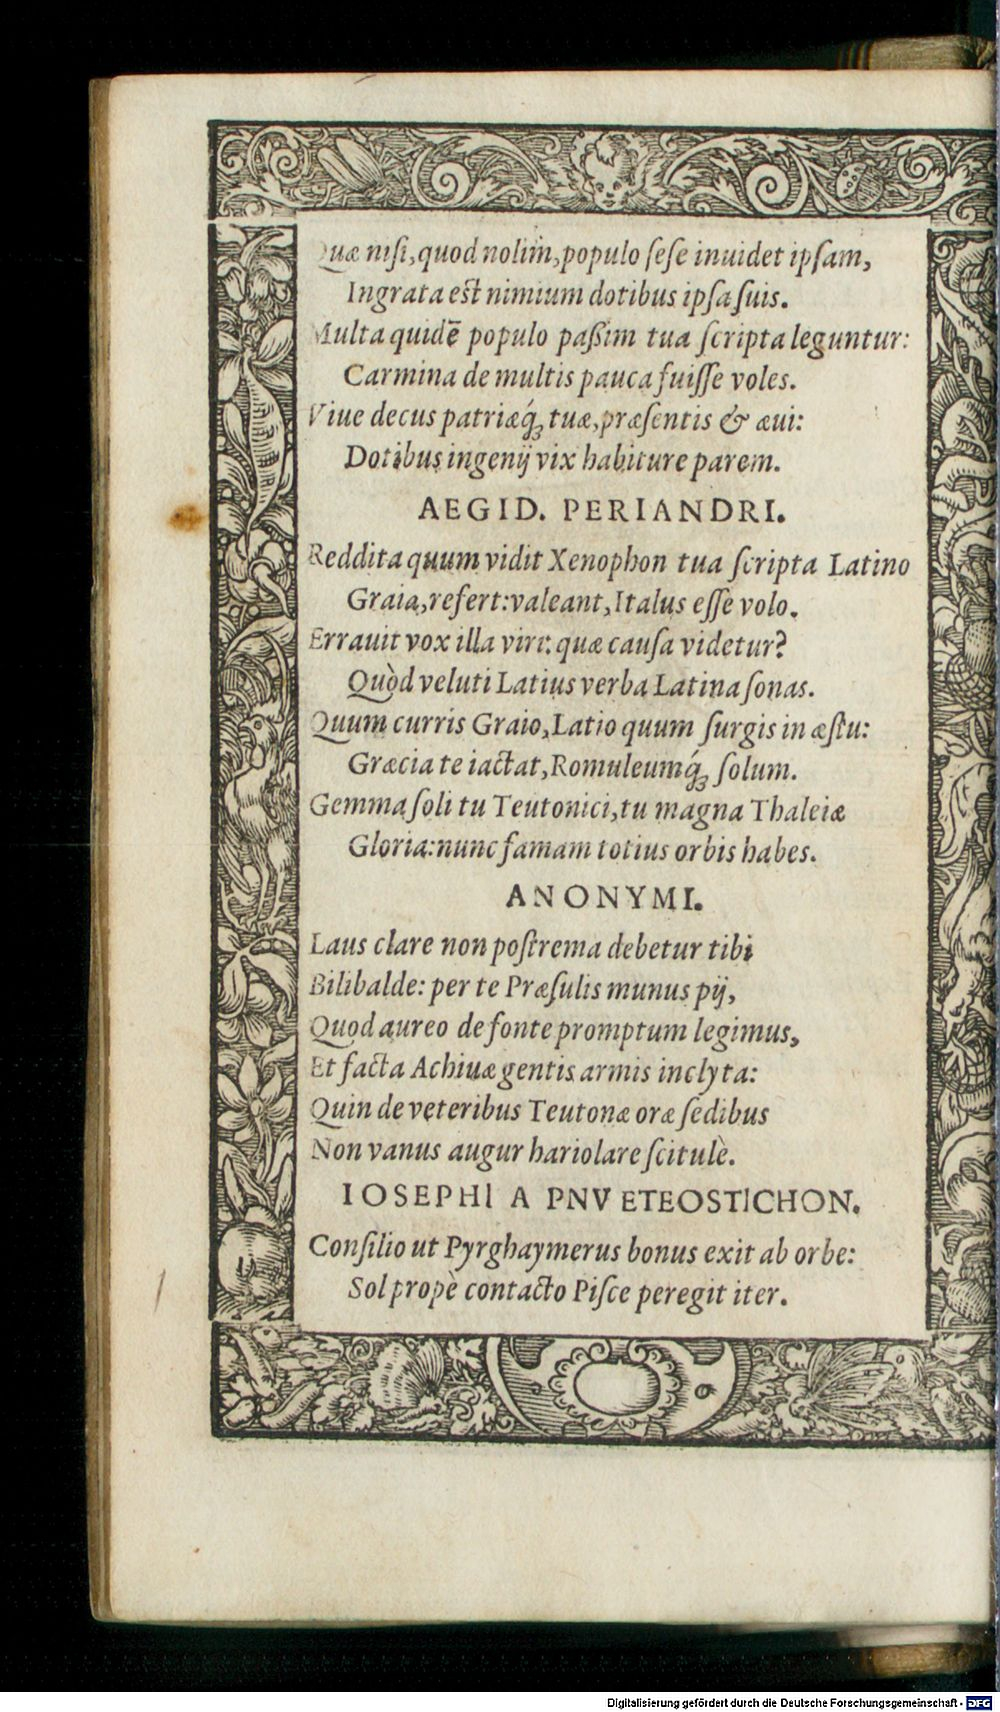 Quæ nisi, quod nolim, populo ſeſe inuidet ipſam,
Ingrata est nimium dotibus ipſa ſuis.
Multa quidē populo paßim tua ſcripta leguntur:
Carmina de multis pauca fuiſſe voles.
Viue decus patriæq́; tuæ, præſentis & æui:
Dotibus ingenij vix habiture parem.
AEGID. PERIANDRI.
Reddita quum vidit Xenophon tua ſcripta Latino
Graia, refert: valeant, Italus eſſe volo.
Errauit vox illa viri: quæ cauſa videtur?
Quòd veluti Latius verba Latina ſonas.
Quum curris Graio, Latio quum ſurgis in æſtu:
Græcia te iactat, Romuleumq́; ſolum.
Gemma ſoli tu Teutonici, tu magna Thaleiæ
Gloria: nunc famam totius orbis habes.
ANONYMI.
Laus clare non poſtrema debetur tibi
Bilibalde: per te Præſulis munus pij,
Quod aureo de fonte promptum legimus,
Et facta Achiuæ gentis armis inclyta:
Quin de veteribus Teutonæ oræ ſedibus
Non vanus augur hariolare ſcitulè.
IOSEPHI A PNV ETEOSTICHON.
Conſilio ut Pyrghaymerus bonus exit ab orbe:
Sol propè contacto Piſce peregit iter.
Digitalisierung gefördert durch die Deutsche Forschungsgemeinschaft - DFG